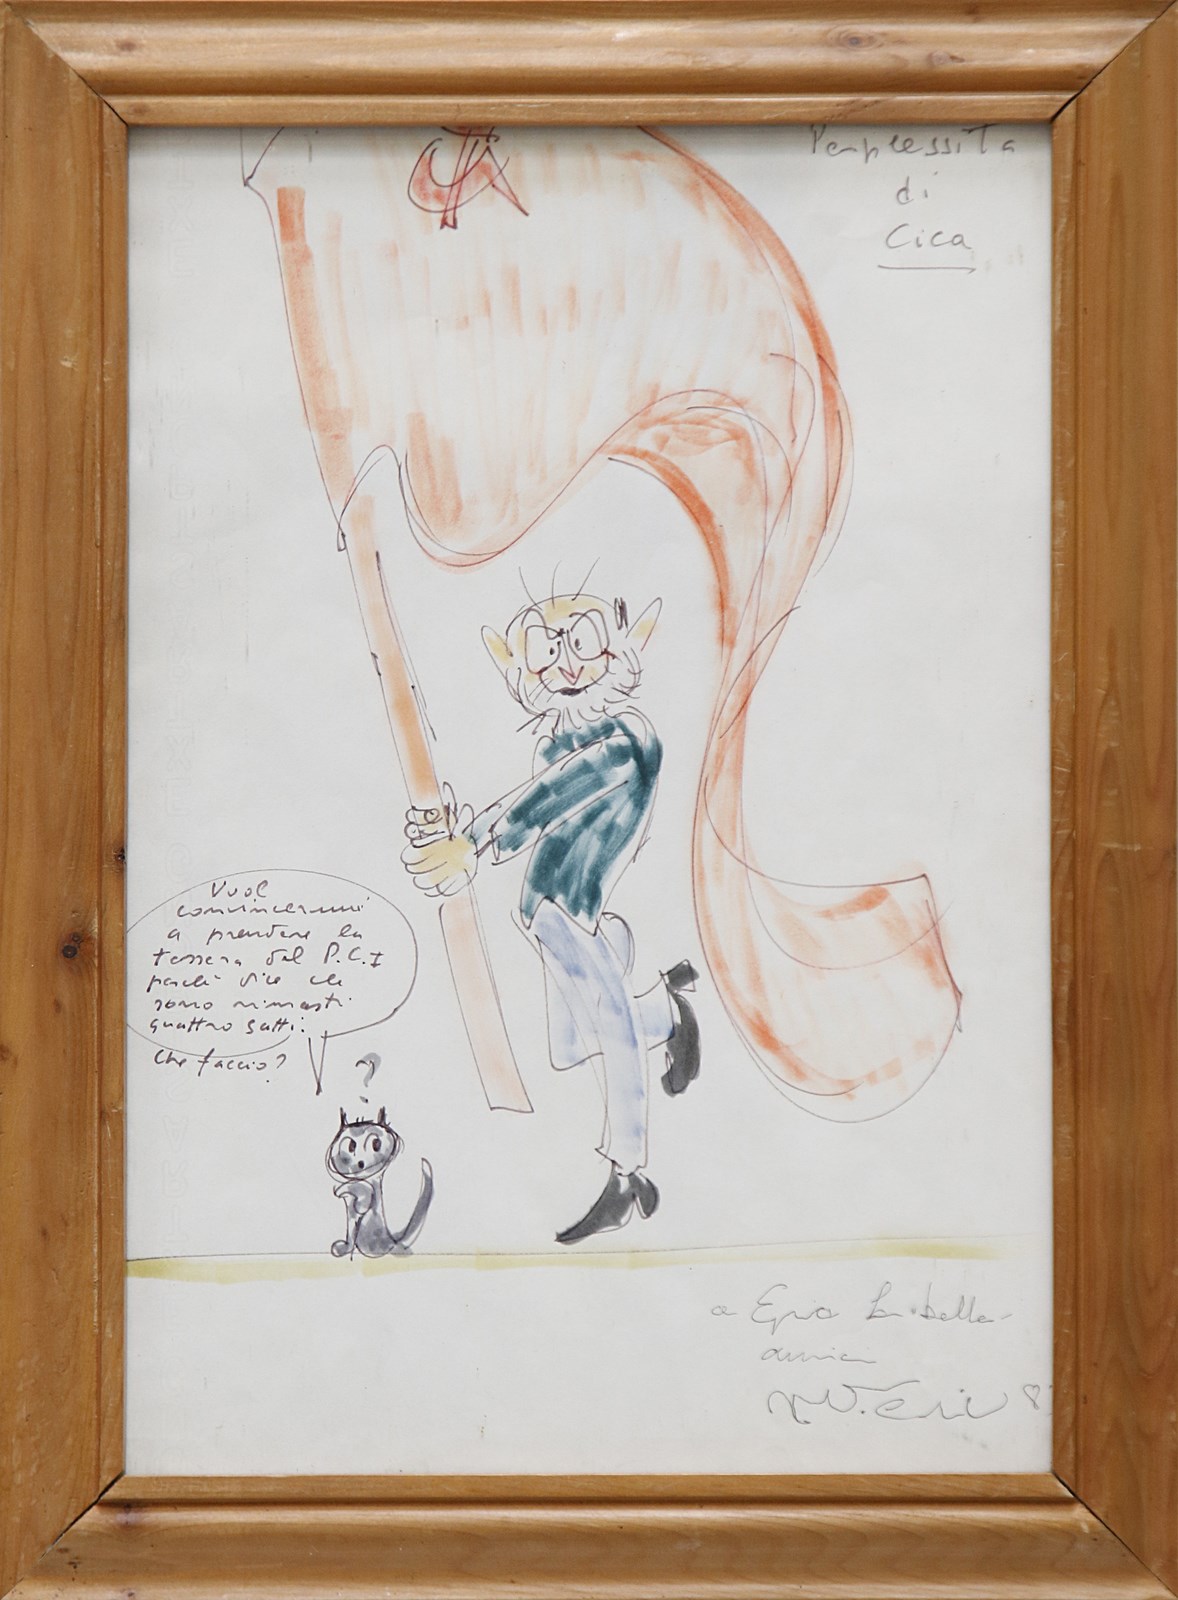 Perplessità
di
Cica
Vuol
convincermi
a prendere la
tessera del P.C.I
perché dice che
sono rimasti
quattro gatti.
Che faccio?
?
a
amici